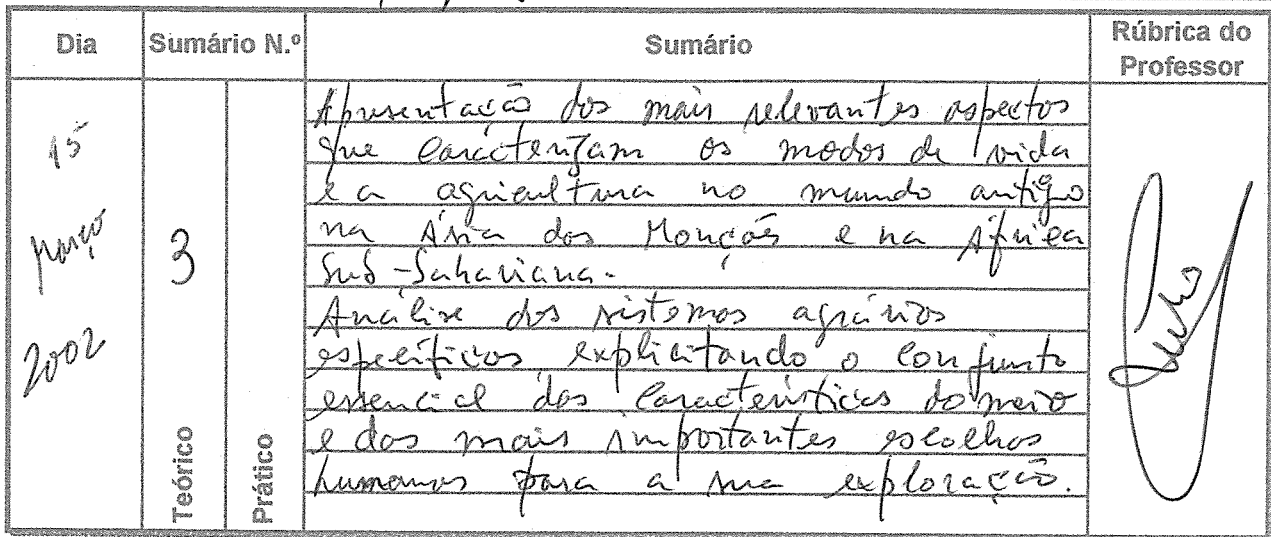 Dia
Sumário N.º
Sumário
Rúbrica do
Professor
15
Março
2002
3
Teórico
Prático
Apresentação dos mais relevantes aspectos
que caracterizam os modos de vida
e a agricultura no mundo antigo
na Ásia das Monções e na África
Sub-Sahariana.
Análise dos sistemas agrários
específicos, explicitando o conjunto
essencial das características do meio
e das mais importantes escolhas
humanas para a sua exploração.